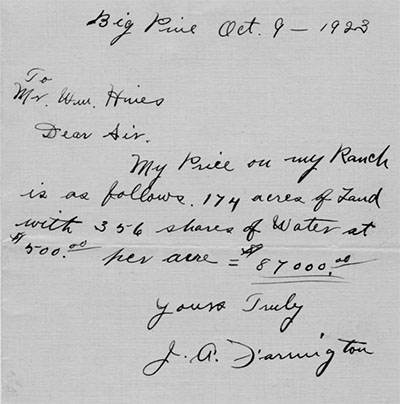 Big Pine Oct. 9 – 1923
To
Mr. Wm. Hines
Dear Sir.
My Price on my Ranch
is as follows. 174 acres of Land
with 356 shares of Water at
$500.00 per acre = $87000.00
Yours Truly
J. A. Darrington